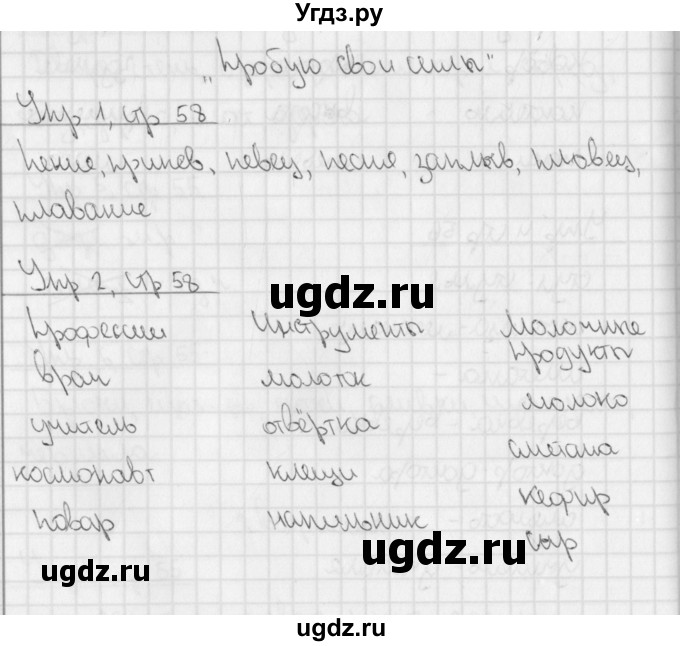 Угдз.ру
„Пробую свои силы"
Упр 1, стр 58
Пение, припев, певец, песня, заплыв, пловец,
плавание
Упр 2, стр 58
ugdz.ru
Профессии Инструменты Молочные продукты
врач молоток молоко
учитель отвёртка сметана
космонавт клещи кефир
повар напильник сыр
ugdz.ru
ugdz.ru
ugdz.ru